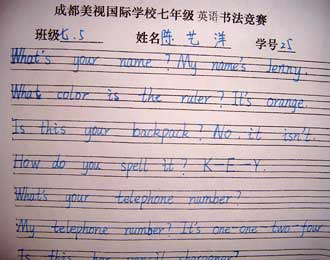 成都美视国际学校七年级 英语书法竞赛
班级七.5 姓名陈艺洋 学号25
What's your name? My name's Jenny.
What color is the ruler? It's orange.
Is this your backpack? No, it isn't.
How do you spell it? K-E-Y.
What's your telephone number?
My telephone number? It's one-one-two-four
Is this her pencil sharpener?